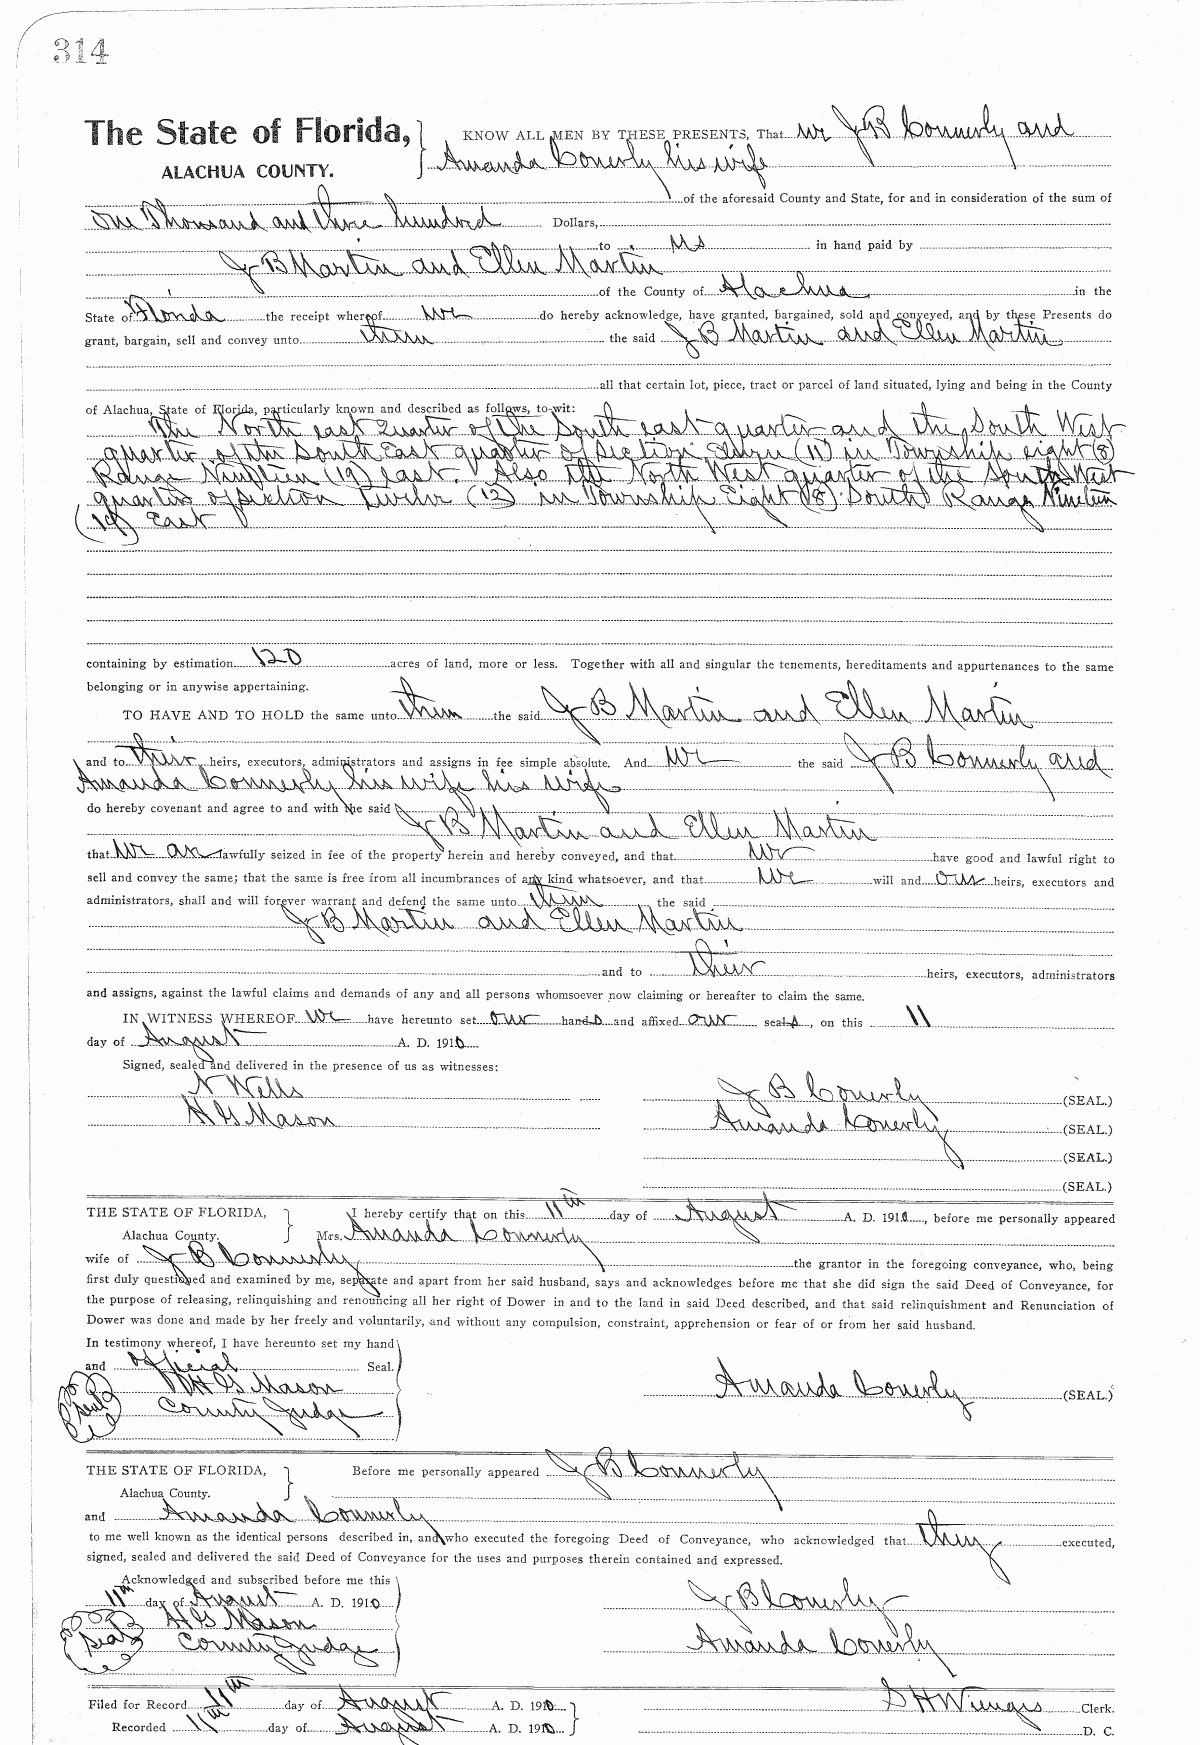 314
The State of Florida, KNOW ALL MEN BY THESE PRESENTS, That we J B Connerly and
ALACHUA COUNTY. Amanda Conerly his wife
of the aforesaid County and State, for and in consideration of the sum of
One Thousand and three hundred Dollars,
to us in hand paid by
J B Martin and Ellen Martin
of the County of Alachua in the
State of Florida the receipt whereof we do hereby acknowledge, have granted, bargained, sold and conveyed, and by these Presents do
grant, bargain, sell and convey unto them the said J B Martin and Ellen Martin
all that certain lot, piece, tract or parcel of land situated, lying and being in the County
of Alachua, State of Florida, particularly known and described as follows, to-wit:
The North east Quarter of the South east quarter and the South West
quarter of the South East quarter of Section Eleven (11) in Township eight (8)
Range Nineteen (19) east. Also the North West quarter of the South West
quarter of section Twelve (12) in Township Eight (8) South Range Nineteen
(19) East
containing by estimation 120 acres of land, more or less. Together with all and singular the tenements, hereditaments and appurtenances to the same
belonging or in anywise appertaining.
TO HAVE AND TO HOLD the same unto them the said J B Martin and Ellen Martin
and to their heirs, executors, administrators and assigns in fee simple absolute. And we the said J B Connerly and
Amanda Connerly his wife his wife
do hereby covenant and agree to and with the said
J B Martin and Ellen Martin
that we are lawfully seized in fee of the property herein and hereby conveyed, and that we have good and lawful right to
sell and convey the same; that the same is free from all incumbrances of any kind whatsoever, and that we will and our heirs, executors and
administrators, shall and will forever warrant and defend the same unto them the said
J B Martin and Ellen Martin
and to their heirs, executors, administrators
and assigns, against the lawful claims and demands of any and all persons whomsoever now claiming or hereafter to claim the same.
IN WITNESS WHEREOF we have hereunto set our hands and affixed our seals, on this 11
day of August A. D. 1910
Signed, sealed and delivered in the presence of us as witnesses:
N Wells J B Conerly (SEAL.)
H G Mason Amanda Conerly (SEAL.)
(SEAL.)
(SEAL.)
THE STATE OF FLORIDA, I hereby certify that on this 11th day of August A. D. 1910, before me personally appeared
Alachua County. Mrs. Amanda Connerly
wife of J B Connerly the grantor in the foregoing conveyance, who, being
first duly questioned and examined by me, separate and apart from her said husband, says and acknowledges before me that she did sign the said Deed of Conveyance, for
the purpose of releasing, relinquishing and renouncing all her right of Dower in and to the land in said Deed described, and that said relinquishment and Renunciation of
Dower was done and made by her freely and voluntarily, and without any compulsion, constraint, apprehension or fear of or from her said husband.
In testimony whereof, I have hereunto set my hand
and official Seal.
H G Mason Amanda Conerly (SEAL.)
seal County Judge
THE STATE OF FLORIDA, Before me personally appeared J B Connerly
Alachua County.
and Amanda Connerly
to me well known as the identical persons described in, and who executed the foregoing Deed of Conveyance, who acknowledged that they executed,
signed, sealed and delivered the said Deed of Conveyance for the uses and purposes therein contained and expressed.
Acknowledged and subscribed before me this
11th day of August A. D. 1910 J B Conerly
H G Mason
seal County Judge Amanda Conerly
Filed for Record 11th day of August A. D. 1910 S H Wienges Clerk.
Recorded 11th day of August A. D. 1910 D. C.